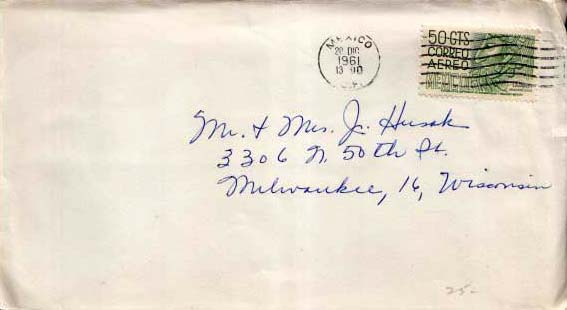 MEXICO
20 DIC
1961
13 00
D.F.
50 CTS
CORREO
AEREO
MEXICO
Mr. & Mrs. J. Husak
3306 N. 50th St.
Milwaukee, 16, Wisconsin
25-